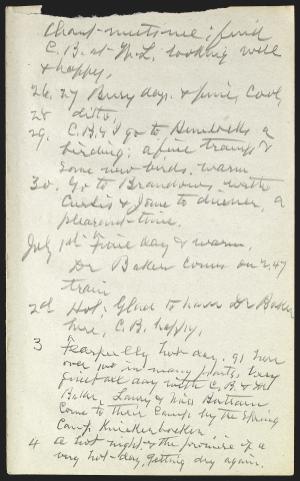 Chant meets me; find
C.B. at W.L. looking well
& happy.
26. 27 Busy days & fine, Cool
28 ditto.
29. C.B. & I go to Hemlocks a
birding; a fine tramp &
some new birds. warm
30. Go to Brandows with
Curtis & Jane to dinner, a
pleasant time.
July 1st Fine day & warm.
Dr Baker comes on 2.47
train
2d Hot; Glad to have Dr Baker
here, C.B. happy.
3 Fearfully hot day. 91 here
over 100 in many places. Very
fine all day with C.B. & Dr
Baker, and Miss
come to their camp by the spring
Camp.
4 A hot night & the promise of a
very hot day, getting dry again.